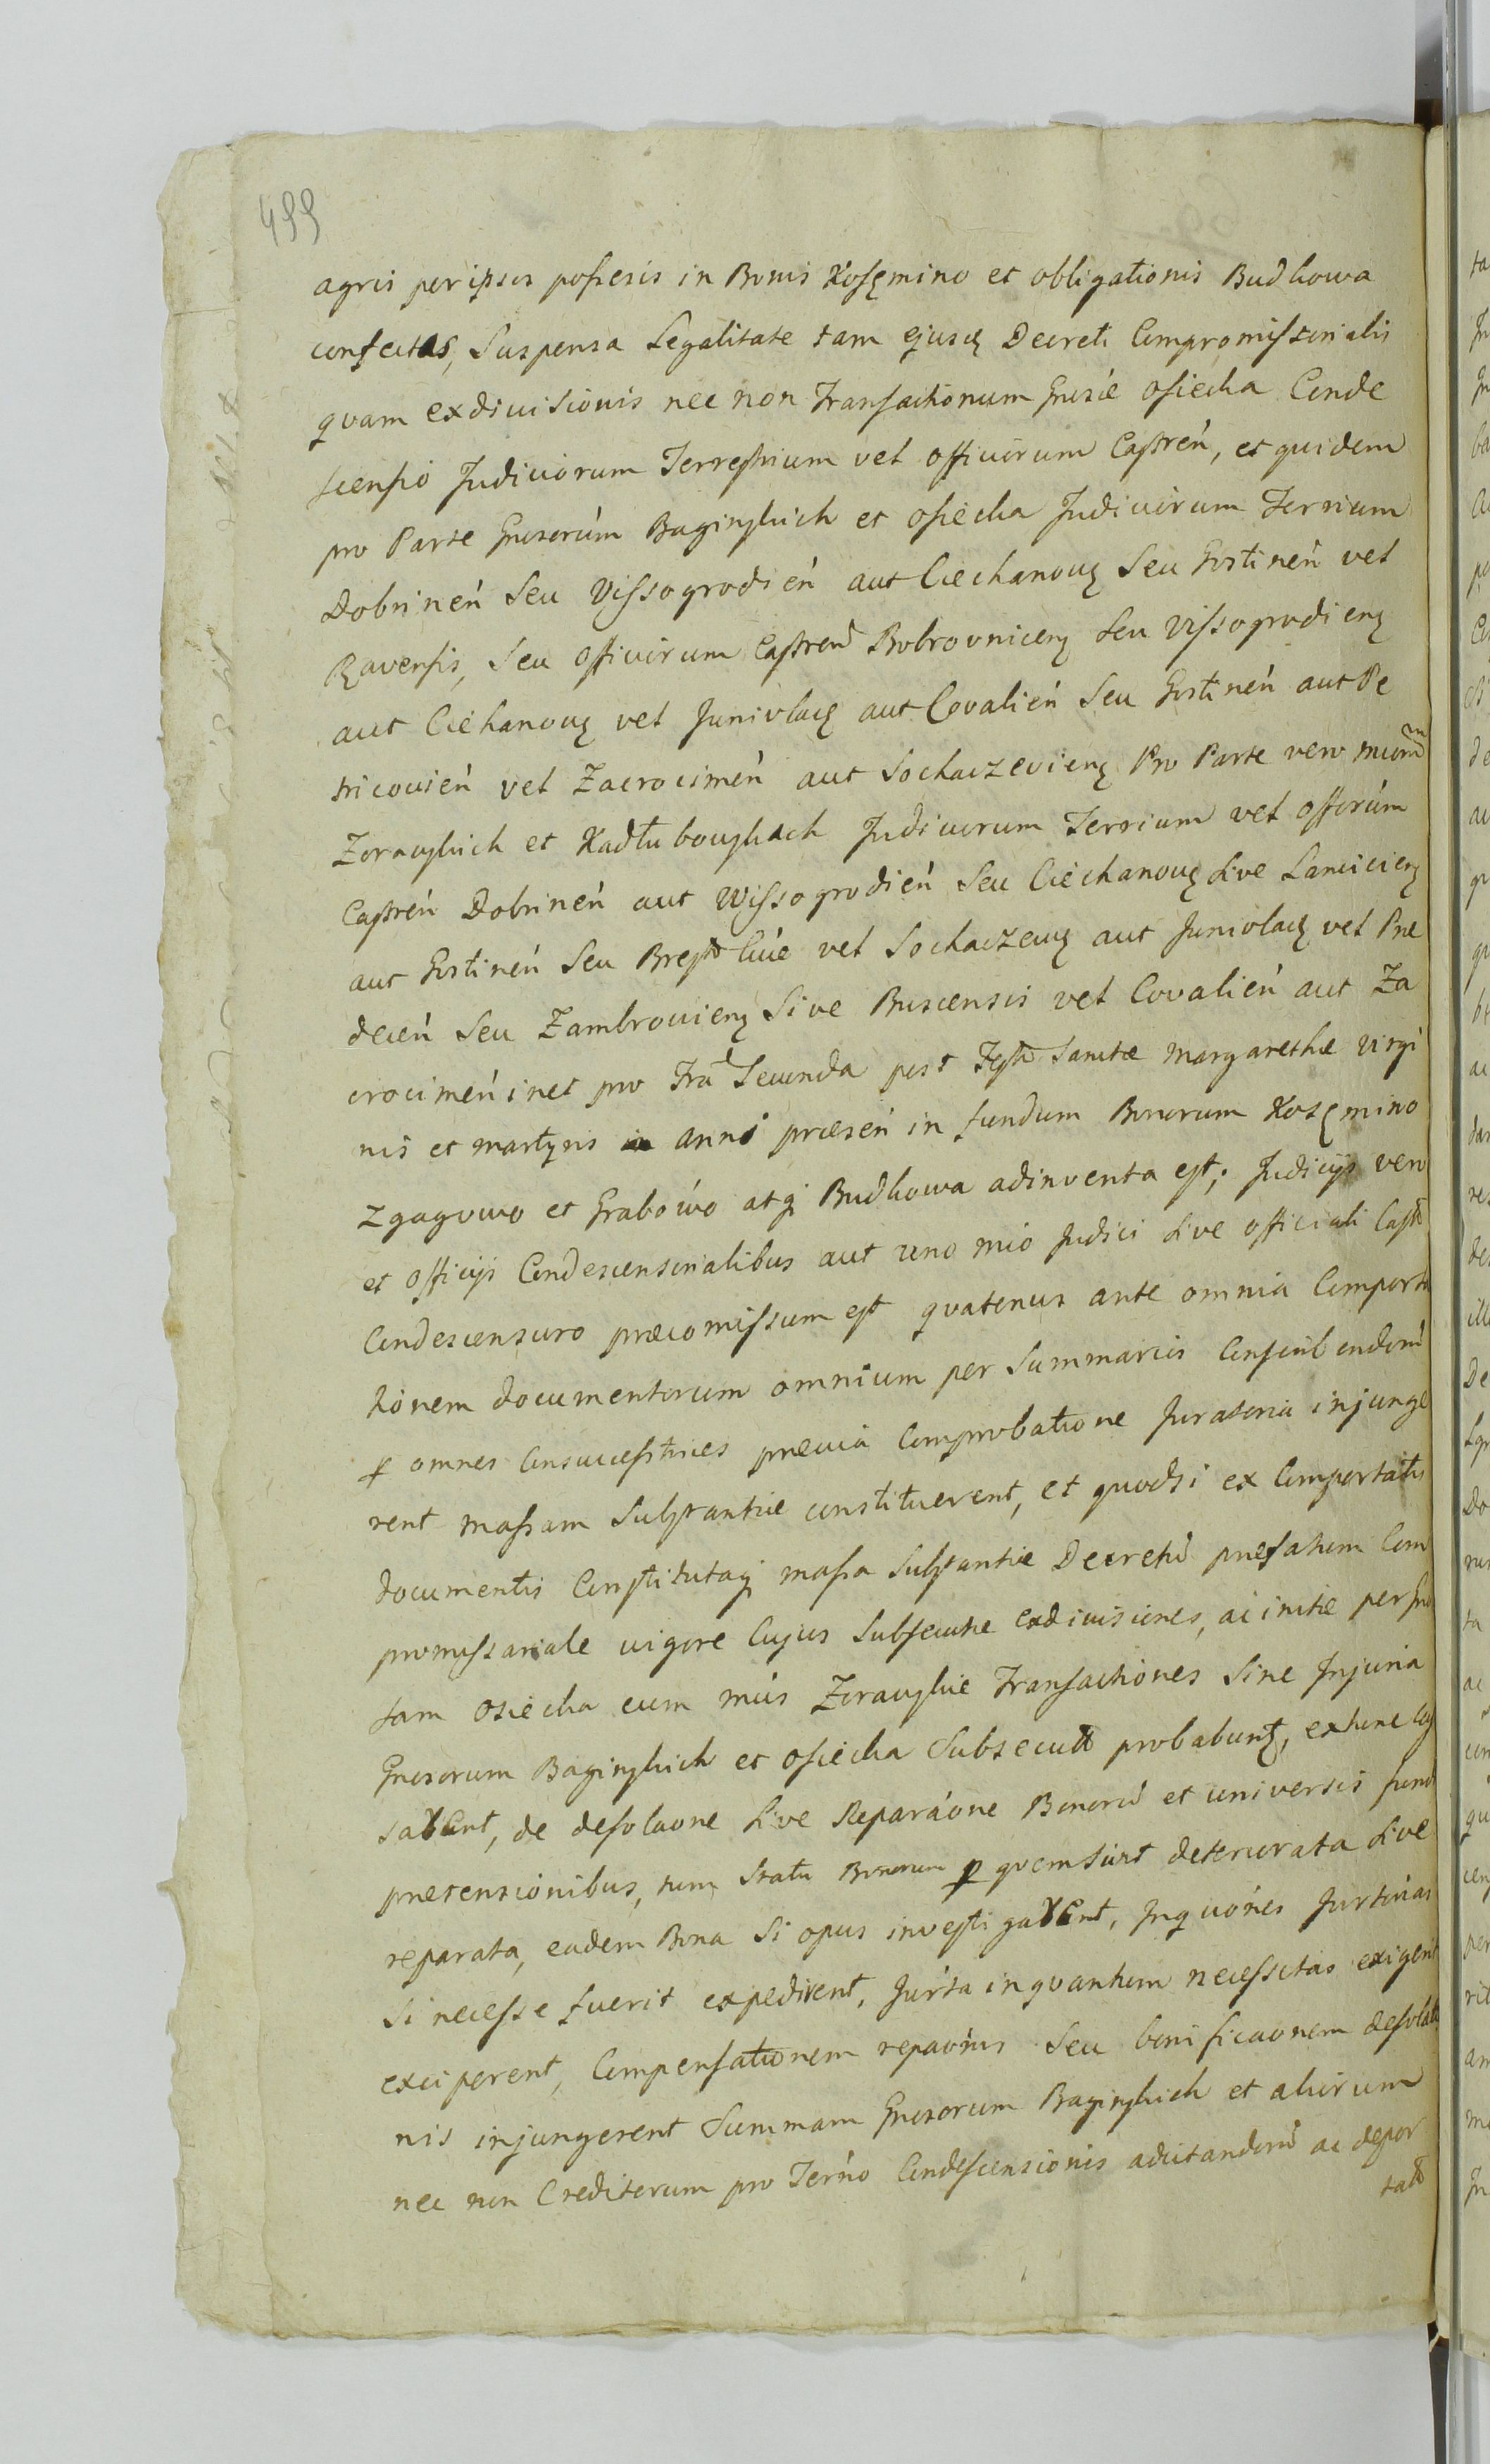 499
agris per ipsos possesis in Bonis Kosęmino et obligationis Budkowa
confectas, Suspensa Legalitate tam ejusq Decreti Compromissorialis
quam exdivisionis nec non Transactionum Gnosæ Osiecka Conde
scensio Judiciorum Terrestrium vel officiorum Castreń, et quidem
pro Parte Gnosorum Baginskich et Osiecka Judiciorum Terrium
Dobrineń Seu Vissogrodień aut Ciechanoug Seu Gostineń vel
Ravensis, Seu officiorum Castreń Bobrovniceng Seu vissogrodieng
aut Ciechanoug vel Junivladg aut Covalień Seu Gostineń aut Pe
tricovień vel Zacrocimeń aut Sochaczevieng Pro Parte vero mcorum
Zorawskich et Kadłubowskich Judiciorum Terrium vel offorum
Castreń Dobrineń aut Wissogrodień Seu Ciechanoug sive Lancicieng
aut Gostineń Seu Brest Cuie vel Sochaczeuig aut Junivladg vel Pne
deceń Seu Zambrovieng Sive Buscensis vel Covalień aut Za
crocimeń inet pro Fra Secunda post Festa Sanctæ Margarethæ virgi
nis et martyris anni præseń in fundum Bonorum Kosęmino
Zgagowo et Grabowo atq Budkowa adinventa est; Judicijs vero
et officijs Condescensorialibus aut uno mło Judici sive officiali Cast
Condescensuro præcomissum est quatenus ante omnia Comporta
tionem documentorum omnium per Summarios Conscribendorum
p omnes Consuccessores prævia Comprobatione Juratoria injunge
rent massam Substantiæ constituerent, et quodsi ex Comportatis
documentis Constitutaq massa Substantiæ Decretum præfatum Com
promissariale vigore Cujus Subsecutæ exdivisiones, ac initæ per Gno
sam Osiecka cum mcis Zorawskie Transactiones Sine Injuria
Gnosorum Baginskich et Osiecka Subsecuta probabunt, extunc
sabunt, de desolaone sive Reparaone Bonorum et universis
prætensionibus, tum Statu Bonorum p quem sunt deteriorata sive
reparata, eadem Bona Si opus investigabunt, Inquiones Jurtorias
Si necesse fuerit expedirent, Jurta inquantum necessitas exigerit
exciperent, Compensationem repaonis Seu bonificaonem desolaō
nis injungerent Summam Gnosorum Baginskich et aliorum
nec non Creditorum pro Termno Condescensionis adcitandorum ac depor
tatō